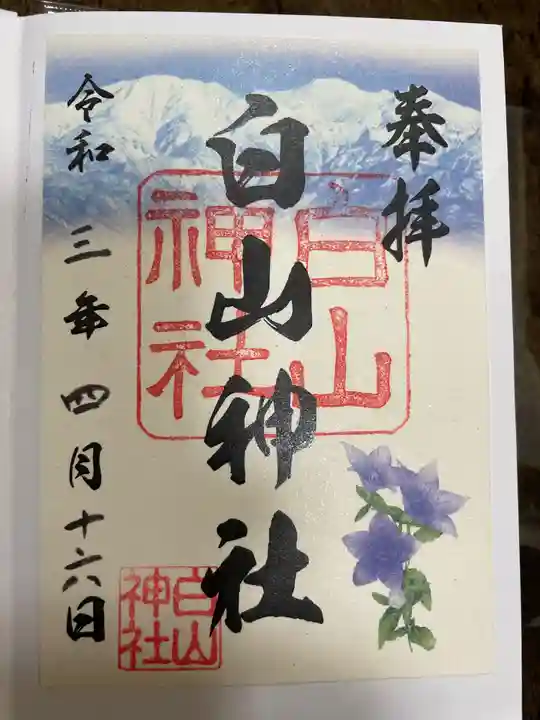 奉拝
白山神社
白山神社
令和 三年 四月十六日
白山神社